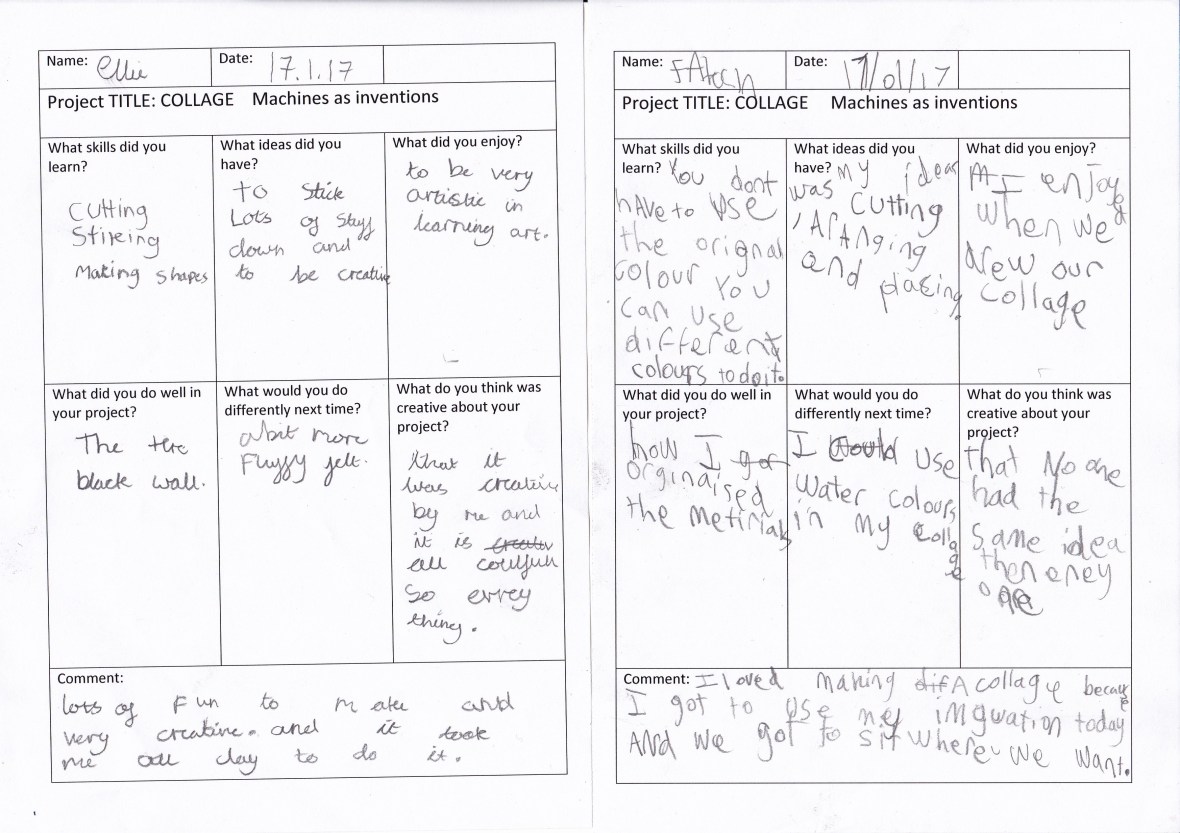 Name: Ellie Date: 17.1.17
Project TITLE: COLLAGE Machines as inventions
What skills did you
learn?
Cutting
Stiking
Making shapes
What ideas did you
have?
to stick
Lots of stuff
down and
to be creative
What did you enjoy?
to be very
artistic in
learning art.
What did you do well in
your project?
The the
black wall.
What would you do
differently next time?
abit more
Fluffy felt.
What do you think was
creative about your
project?
that it
was creative
by me and
it is
all coulfull
so evrey
thing.
Comment:
lots of Fun to make and
very creative. and it took
me all day to do it.
Name: Date: 17/01/17
Project TITLE: COLLAGE Machines as inventions
What skills did you
learn? You dont
hAve to use
the orignal
colour You
can use
different
colours to do it.
What ideas did you
have? my ideas
was cutting
, ArAnging
and placing.
What did you enjoy?
I enjoyed
when we
New our
collage
What did you do well in
your project?
how I got
orginaised
the metirials
What would you do
differently next time?
I would use
water colours
in my collage
What do you think was
creative about your
project?
that No one
had the
same idea
then eney
one
Comment: I loved making A collage because
I got to use my today
AND we got to sit where we want.